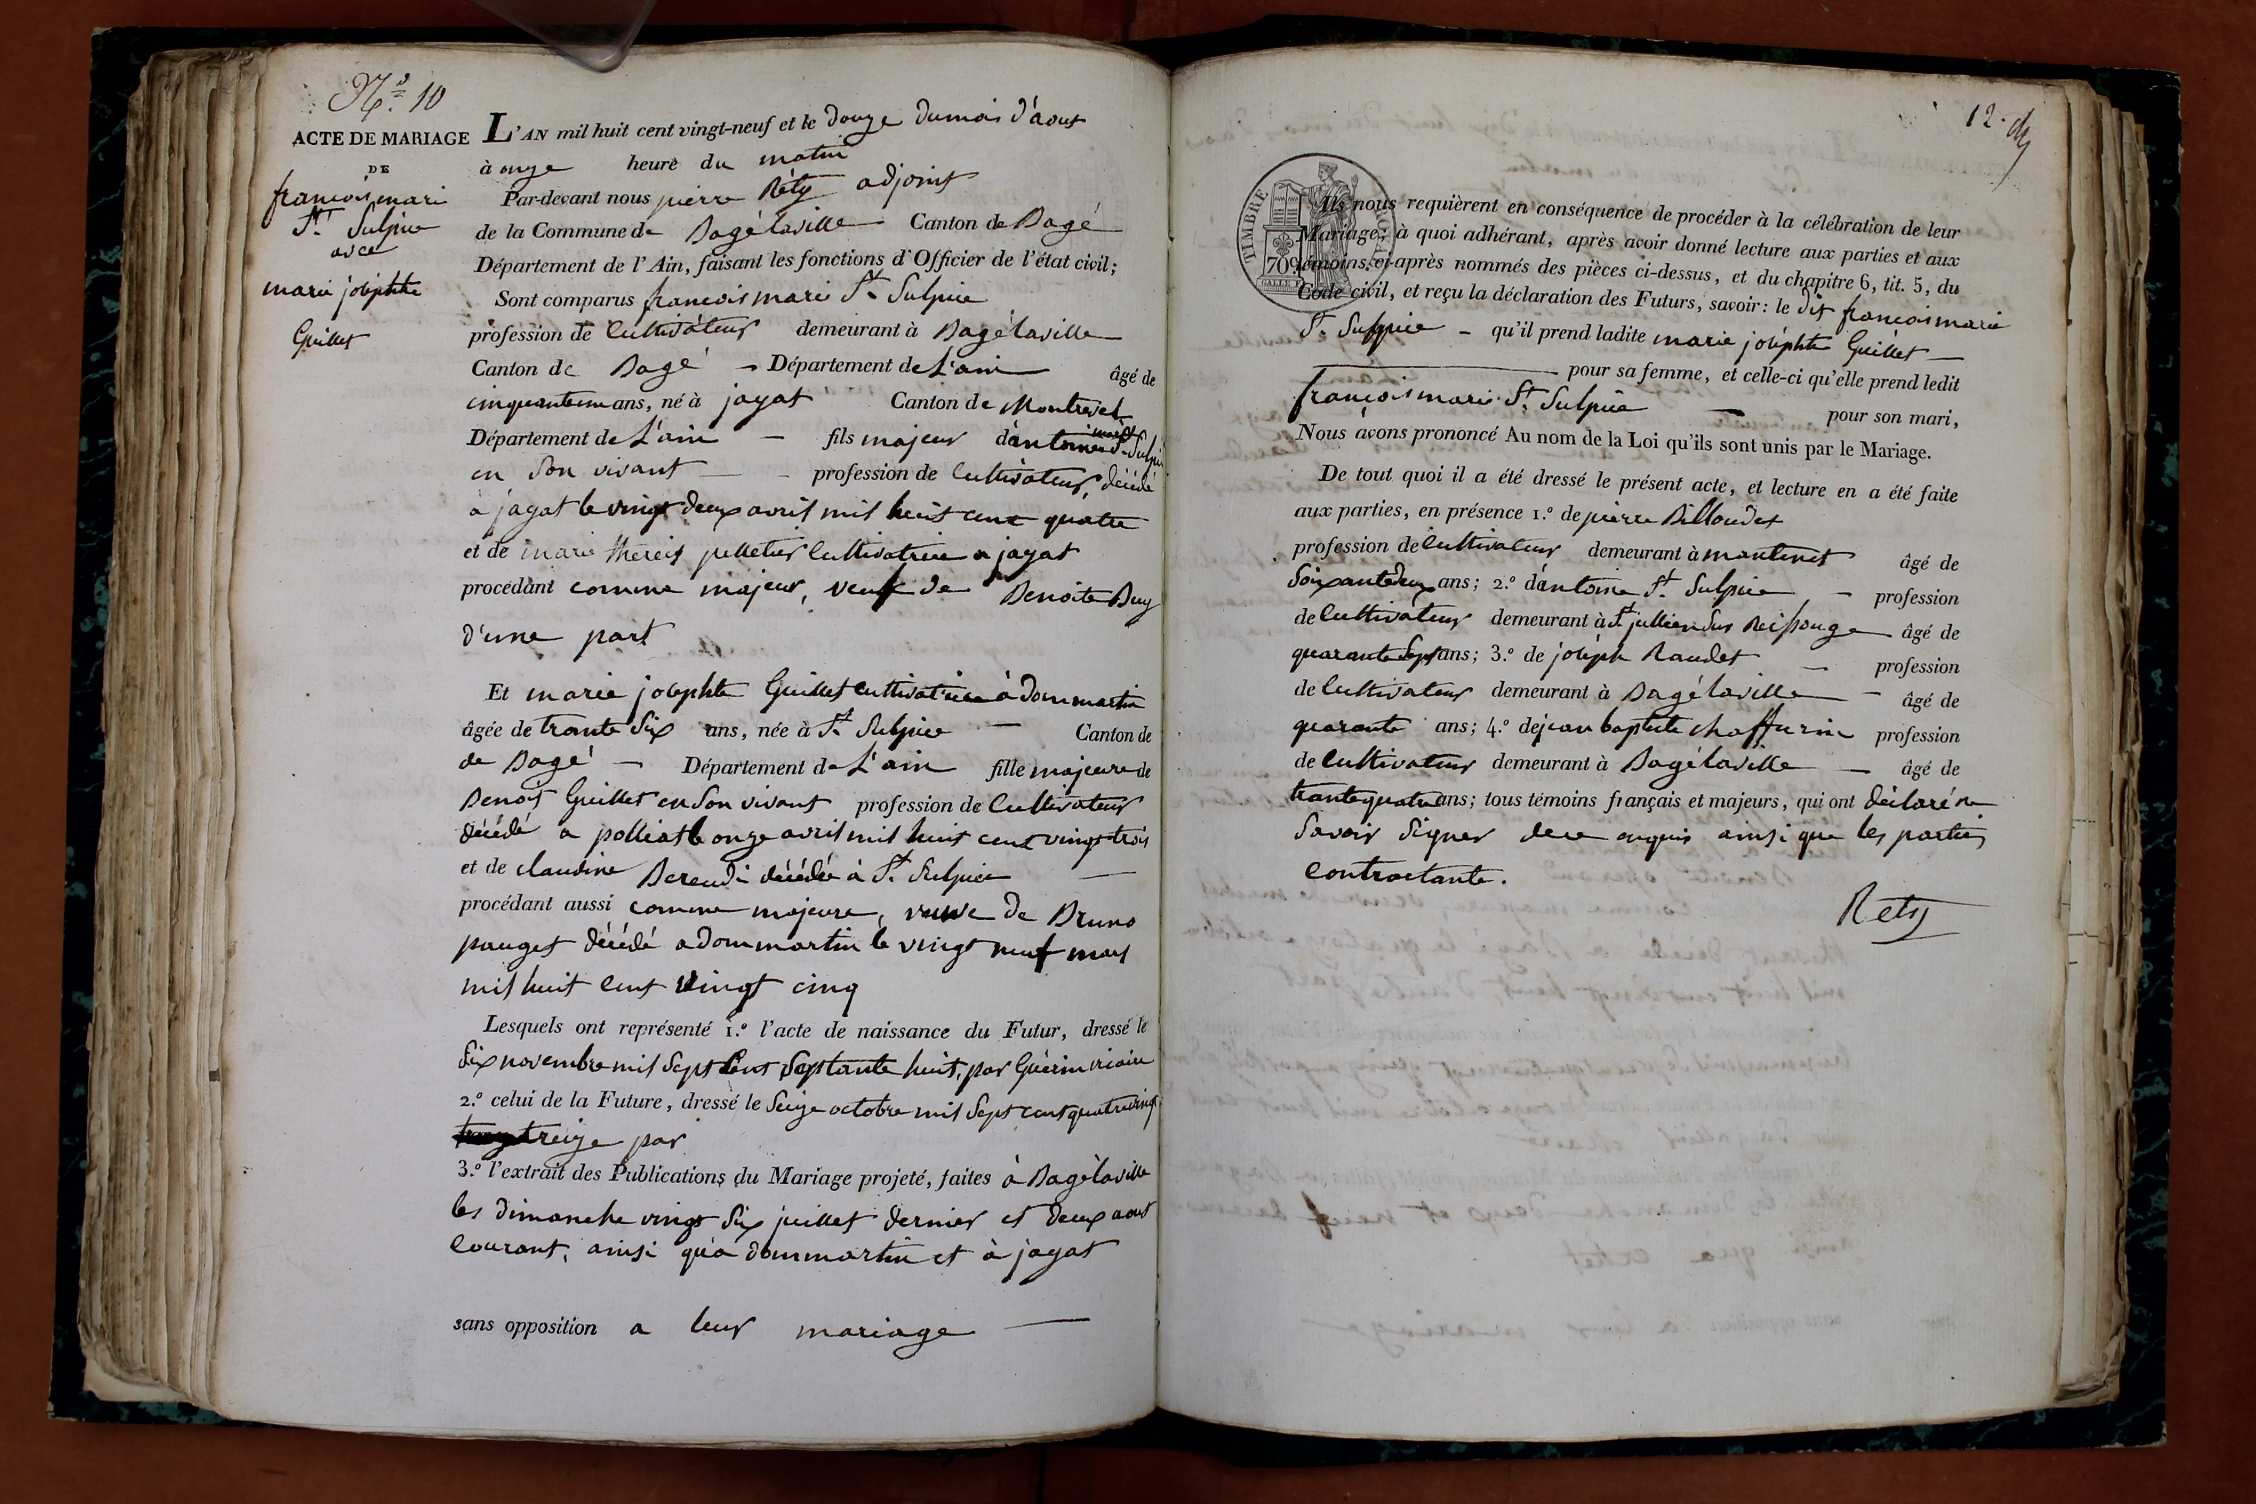 N.° 10
ACTE DE MARIAGE
DE
francois mari
St. Sulpice
avec
marie josephte
Guillet
L'AN mil huit cent vingt-neuf et le douze dumois d'aout
à onze heure du matin
Par-devant nous pierre Réty adjoint
de la Commune de Bagélaville Canton de Bagé
Département de l'Ain, faisant les fonctions d'Officier de l'état civil;
Sont comparus francois marie St. Sulpice
profession de Cultivateur demeurant à Bagélaville
Canton de Bagé Département de L'ain âgé de
cinquante un ans, né à jayat Canton de Montrevel
Département de L'ain fils majeur d'antoine St. Sulpice
en son vivant profession de Cultivateur, décédé
à jayat le vingt deux avril mil huit cent quatre
et de marie thereis pelletier Cultivatrice a jayat
procédant comme majeur, veuf de Benoite Buy
d'une part
Et marie josephte Guillet cultivatrice à dommartin
âgée de trante six ans, née à St. Sulpice Canton de
de Bagé Département de L'ain fille majeure de
Benoit Guillet en son vivant profession de Cultivateur
décédé a polliat le onze avril mil huit cent vingt trois
et de claudine Bereudi décédée à St. Sulpice
procédant aussi comme majeure, veuve de Bruno
pauget décédé a dommartin le vingt neuf mars
mil huit cent vingt cinq
Lesquels ont représenté 1.° l'acte de naissance du Futur, dressé le
six novembre mil sept cent septante huit, par Guérin vicaire
2.° celui de la Future, dressé le seize octobre mil sept cent quatrevingt
treize par
3.° l'extrait des Publications du Mariage projeté, faites à Bagélaville
les dimanche vingt six juillet dernier et deux aout
courant, ainsi qu'a dommartin et à jayat
sans opposition a leur mariage
12.
TIMBRE
70c
Ils nous requièrent en conséquence de procéder à la célébration de leur
Mariage; à quoi adhérant, après avoir donné lecture aux parties et aux
témoins ci-après nommés des pièces ci-dessus, et du chapitre 6, tit. 5, du
Code civil, et reçu la déclaration des Futurs, savoir: le dit francois marie
St. Sulpice - qu'il prend ladite marie joséphte Guillet
pour sa femme, et celle-ci qu'elle prend ledit
francois marie St. Sulpice pour son mari,
Nous avons prononcé Au nom de la Loi qu'ils sont unis par le Mariage.
De tout quoi il a été dressé le présent acte, et lecture en a été faite
aux parties, en présence 1.° de pierre Billoudet
profession de Cultivateur demeurant à mantenet âgé de
Soixante deux ans; 2.° d'antoine St. Sulpice profession
de Cultivateur demeurant à St jullien sur Reissouze âgé de
quarante sept ans; 3.° de joséph Raudet profession
de Cultivateur demeurant à Bagélaville âgé de
quarante ans; 4.° de jean baptiste chaffurin profession
de Cultivateur demeurant à Bagélaville âgé de
trante quatre ans; tous témoins français et majeurs, qui ont déclaré ne
savoir signer de ce enquis ainsi que les parties
contractante.
Rety